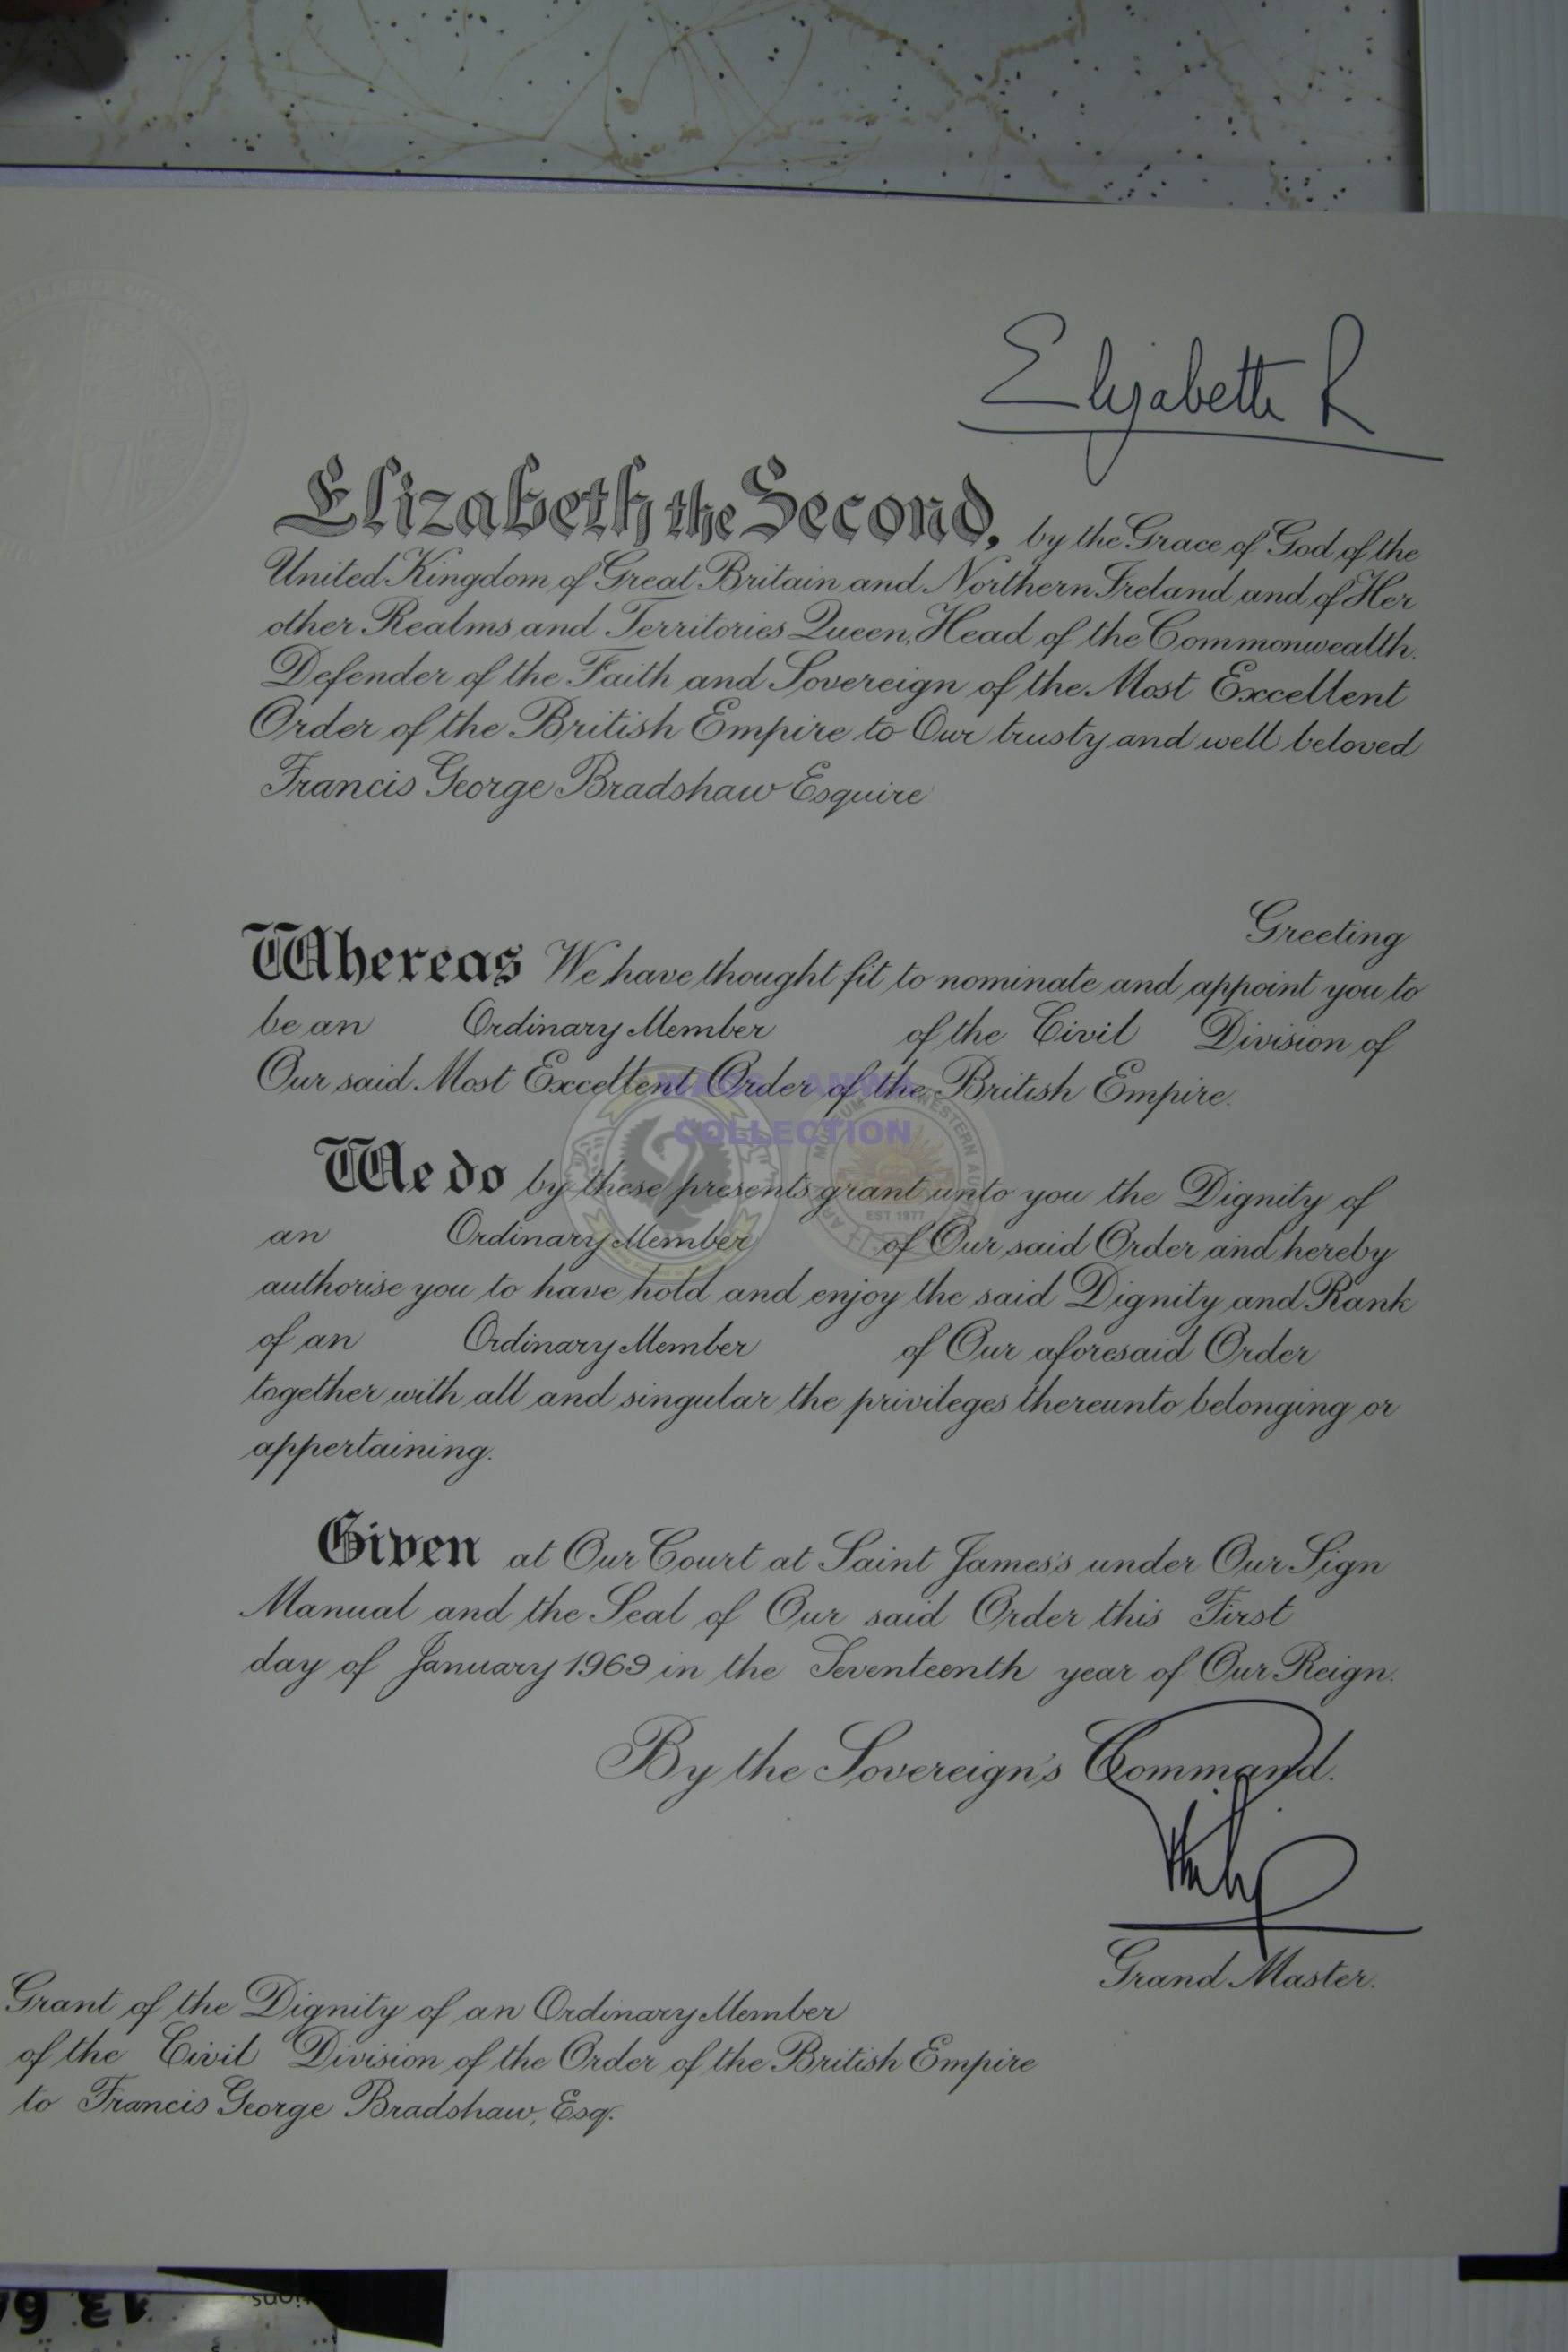 Elizabeth R
Elizabeth the Second, by the Grace of God of the
United Kingdom of Great Britain and Northern Ireland and of Her
other Realms and Territories Queen, Head of the Commonwealth,
Defender of the Faith and Sovereign of the Most Excellent
Order of the British Empire to Our trusty and well beloved
Francis George Bradshaw Esquire
Greeting
Whereas We have thought fit to nominate and appoint you to
be an Ordinary Member of the Civil Division of
Our said Most Excellent Order of the British Empire.
COLLECTION
We do by these presents grant unto you the Dignity of
EST 1977
an Ordinary Member of Our said Order and hereby
authorise you to have hold and enjoy the said Dignity and Rank
of an Ordinary Member of Our aforesaid Order
together with all and singular the privileges thereunto belonging or
appertaining.
Given at Our Court at Saint James's under Our Sign
Manual and the Seal of Our said Order this First
day of January 1969 in the Seventeenth year of Our Reign.
By the Sovereign's Command.
Philip
Grand Master.
Grant of the Dignity of an Ordinary Member
of the Civil Division of the Order of the British Empire
to Francis George Bradshaw, Esq.